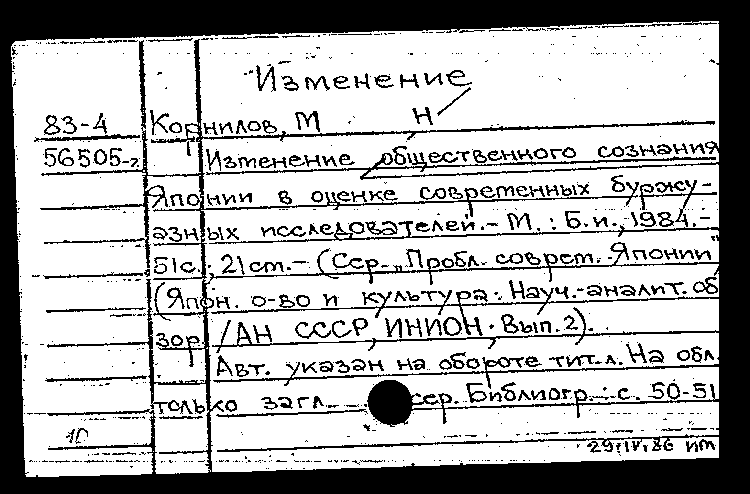 Изменение
83-4 Корнилов, М Н
56505-г Изменение общественного сознания
Японии в оценке современных буржу-
азных исследователей.- М.: Б.и., 1984.-
51с.; 21см.- (Сер. "Пробл. соврем. Японии"
(Япон. о-во и культура: Науч.-аналит. об
зор / АН СССР, ИНИОН; Вып. 2).
Авт. указан на обороте тит. л. На обл.
только загл. сер. Библиогр.: с. 50-51
10
29.IV.86 ИМ